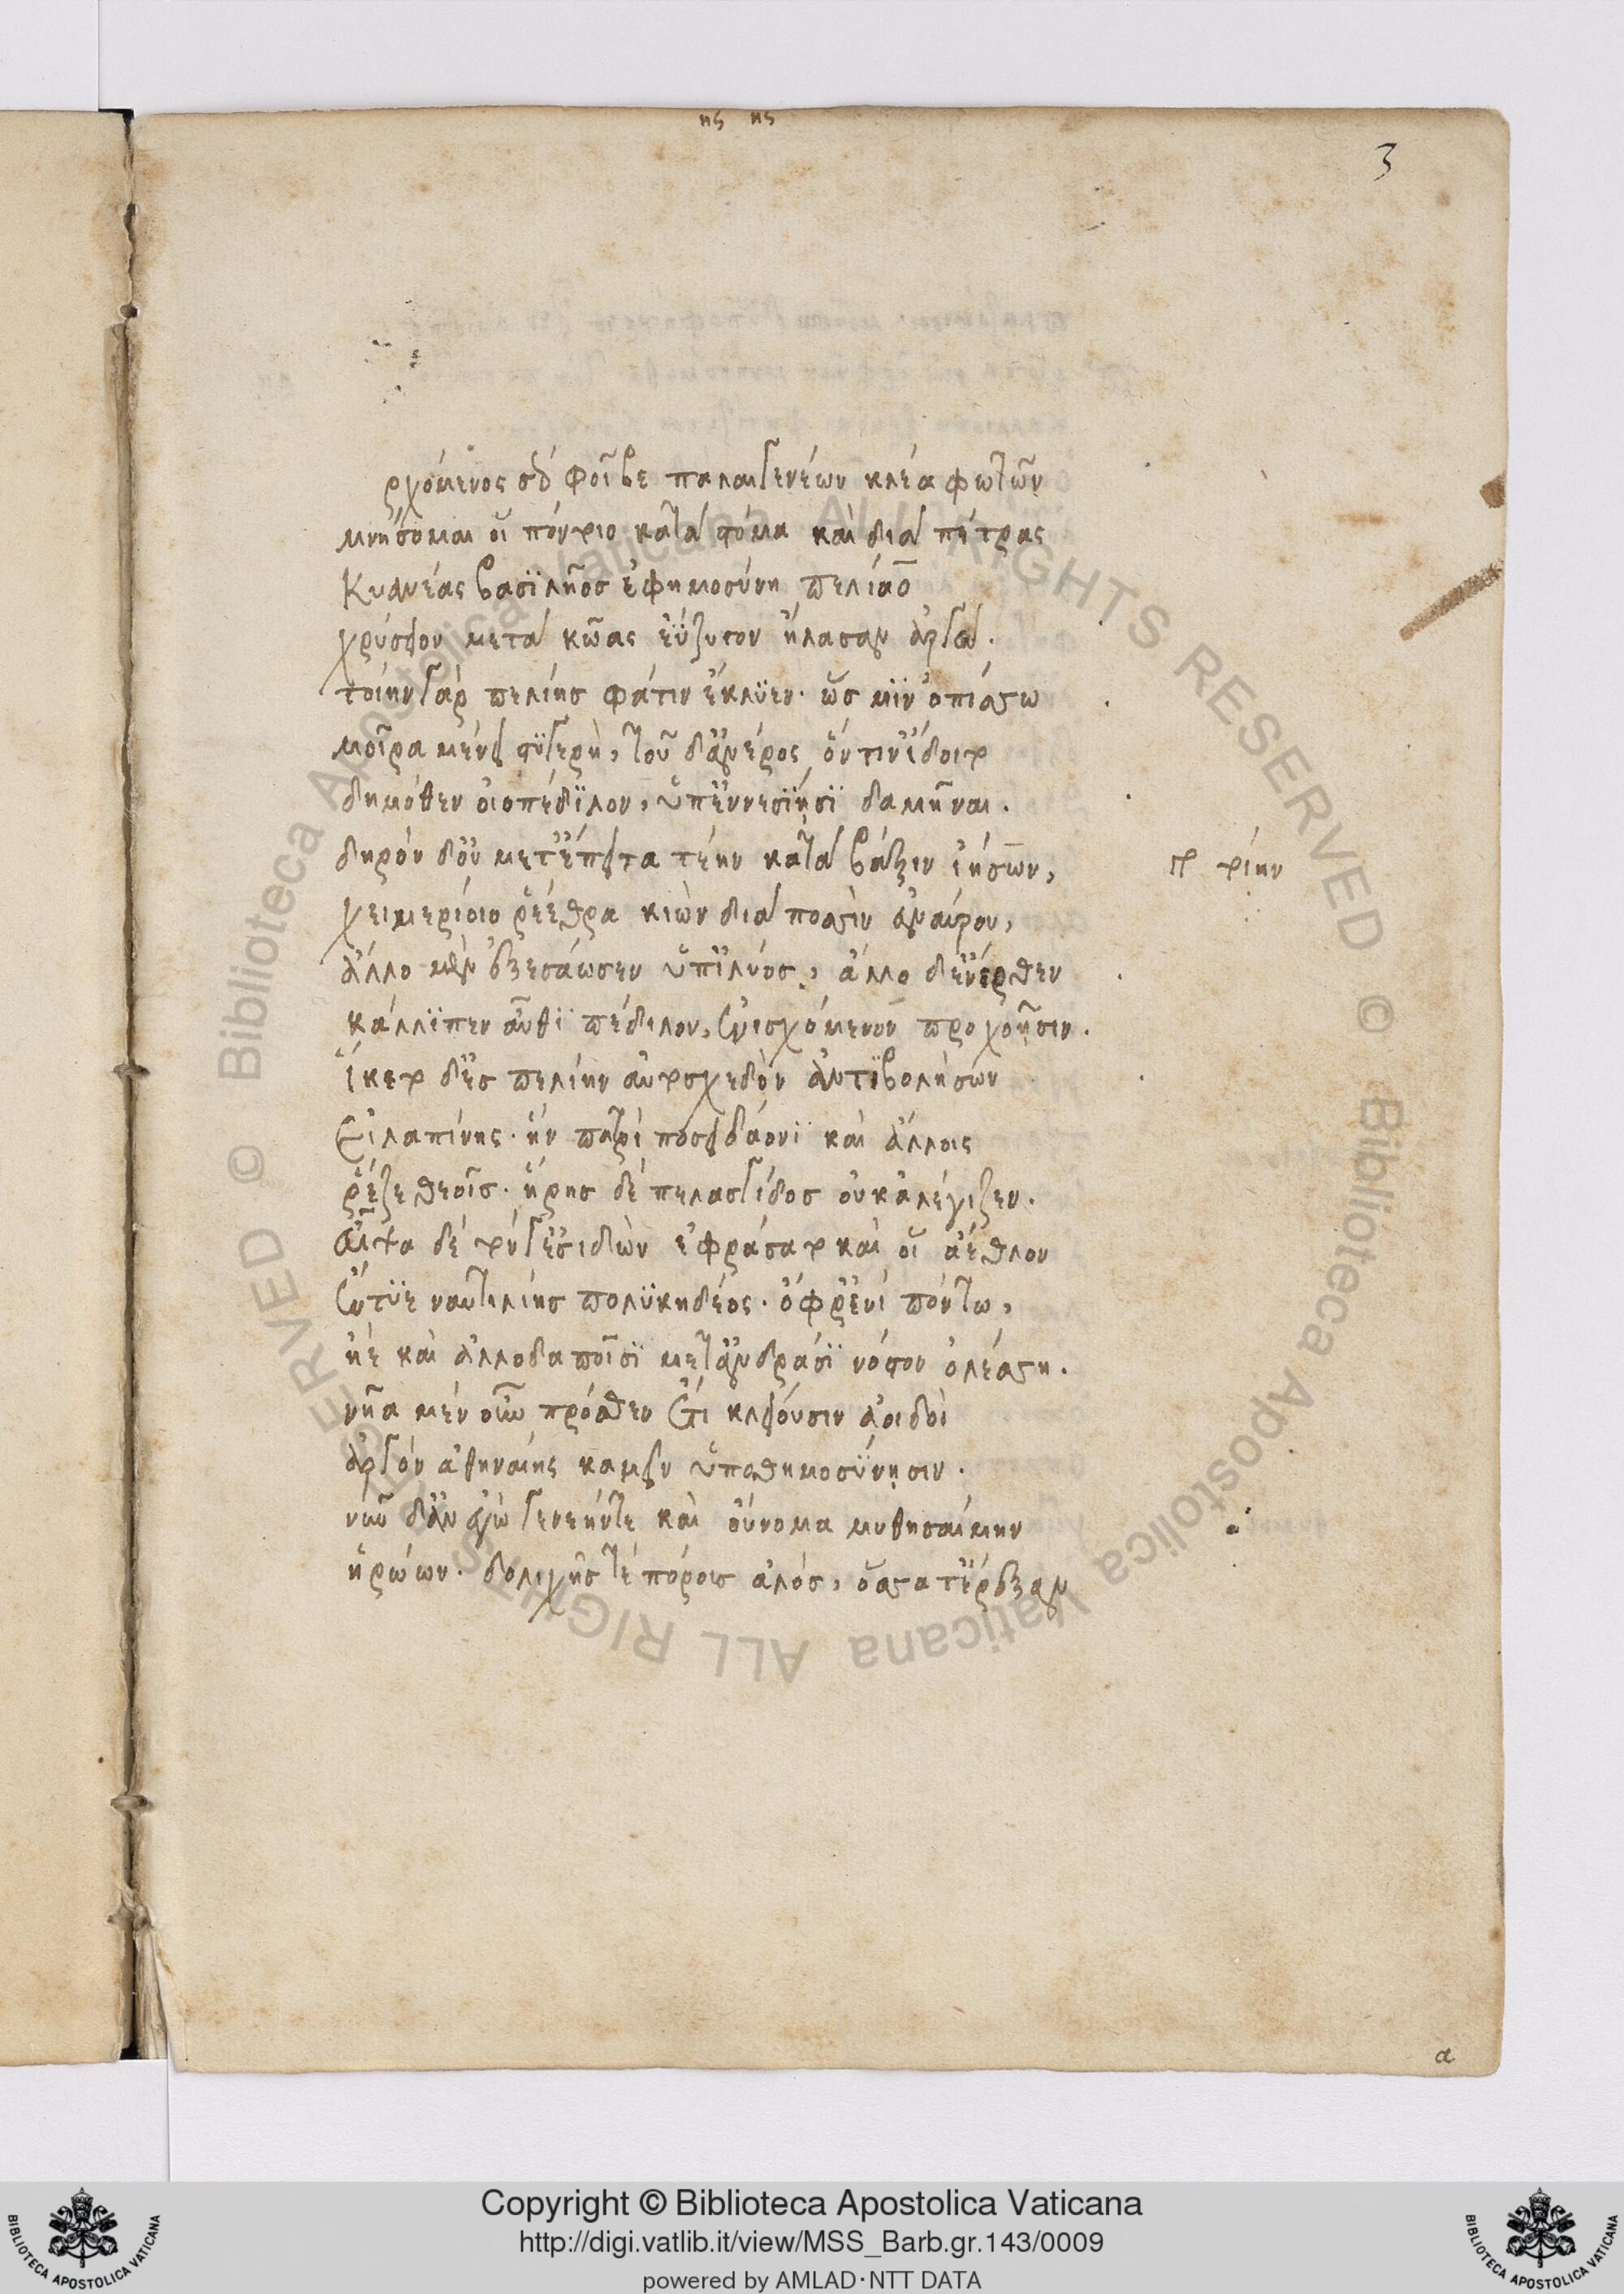 ης ης
3
ρχόμενος σέο φοῖβε παλαιγενέων κλέα φωτῶν
μνήσομαι οἳ πόντοιο κατὰ στόμα καὶ διὰ πέτρας
Κυανέας βασιλῆος ἐφημοσύνη πελίαο
χρύσειον μετὰ κῶας ἐΰζυγον ἤλασαν ἀργώ.
τοίην γὰρ πελίης φάτιν ἔκλυεν. ὥς μιν ὀπίσσω
μοῖρα μένει στυγερὴ, τοῦ δ' ἀνέρος ὅντιν' ἴδοιτο
δημόθεν οἰοπέδιλον, ὑπ' ἐννεσίῃσι δαμῆναι.
δηρὸν δ' οὐ μετέπειτα τεὴν κατὰ βάξιν ἰήσων,
χειμερίοιο ῥέεθρα κιὼν διὰ ποσσὶν ἀναύρου,
ἄλλο μὲν ἐξεσάωσεν ὑπ' ἰλύος, ἄλλο δ' ἔνερθεν
κάλλιπεν αὖθι πέδιλον, ἐνισχόμενον προχοῇσιν.
ἵκετο δ' ἐς πελίην αὐτοσχεδὸν ἀντιβολήσων
Εἰλαπίνης. ἣν πατρὶ ποσειδάονι καὶ ἄλλοις
ῥέζε θεοῖς. ἥρης δὲ πελασγίδος οὐκ ἀλέγιζεν.
αἶψα δὲ τόνγ' ἐσιδὼν ἐφράσατο καὶ οἱ ἄεθλον
ἔντυε ναυτιλίης πολυκηδέος. ὄφρ' ἐνὶ πόντω,
ἠὲ καὶ ἀλλοδαποῖσι μετ' ἀνδράσι νόστον ὀλέσση.
νῆα μὲν οὖν πρόσθεν ἔτι κλείουσιν ἀοιδοὶ
ἀργὸν ἀθηναίης καμεῖν ὑποθημοσύνῃσιν.
νῦν δ' ἂν ἐγὼ γενεήν τε καὶ οὔνομα μυθησαίμην
ἡρώων. δολιχῆς τε πόρους ἁλός, ὅσσα τ' ἔρεξαν
τρίην
α
Copyright © Biblioteca Apostolica Vaticana
http://digi.vatlib.it/view/MSS_Barb.gr.143/0009
powered by AMLAD·NTT DATA